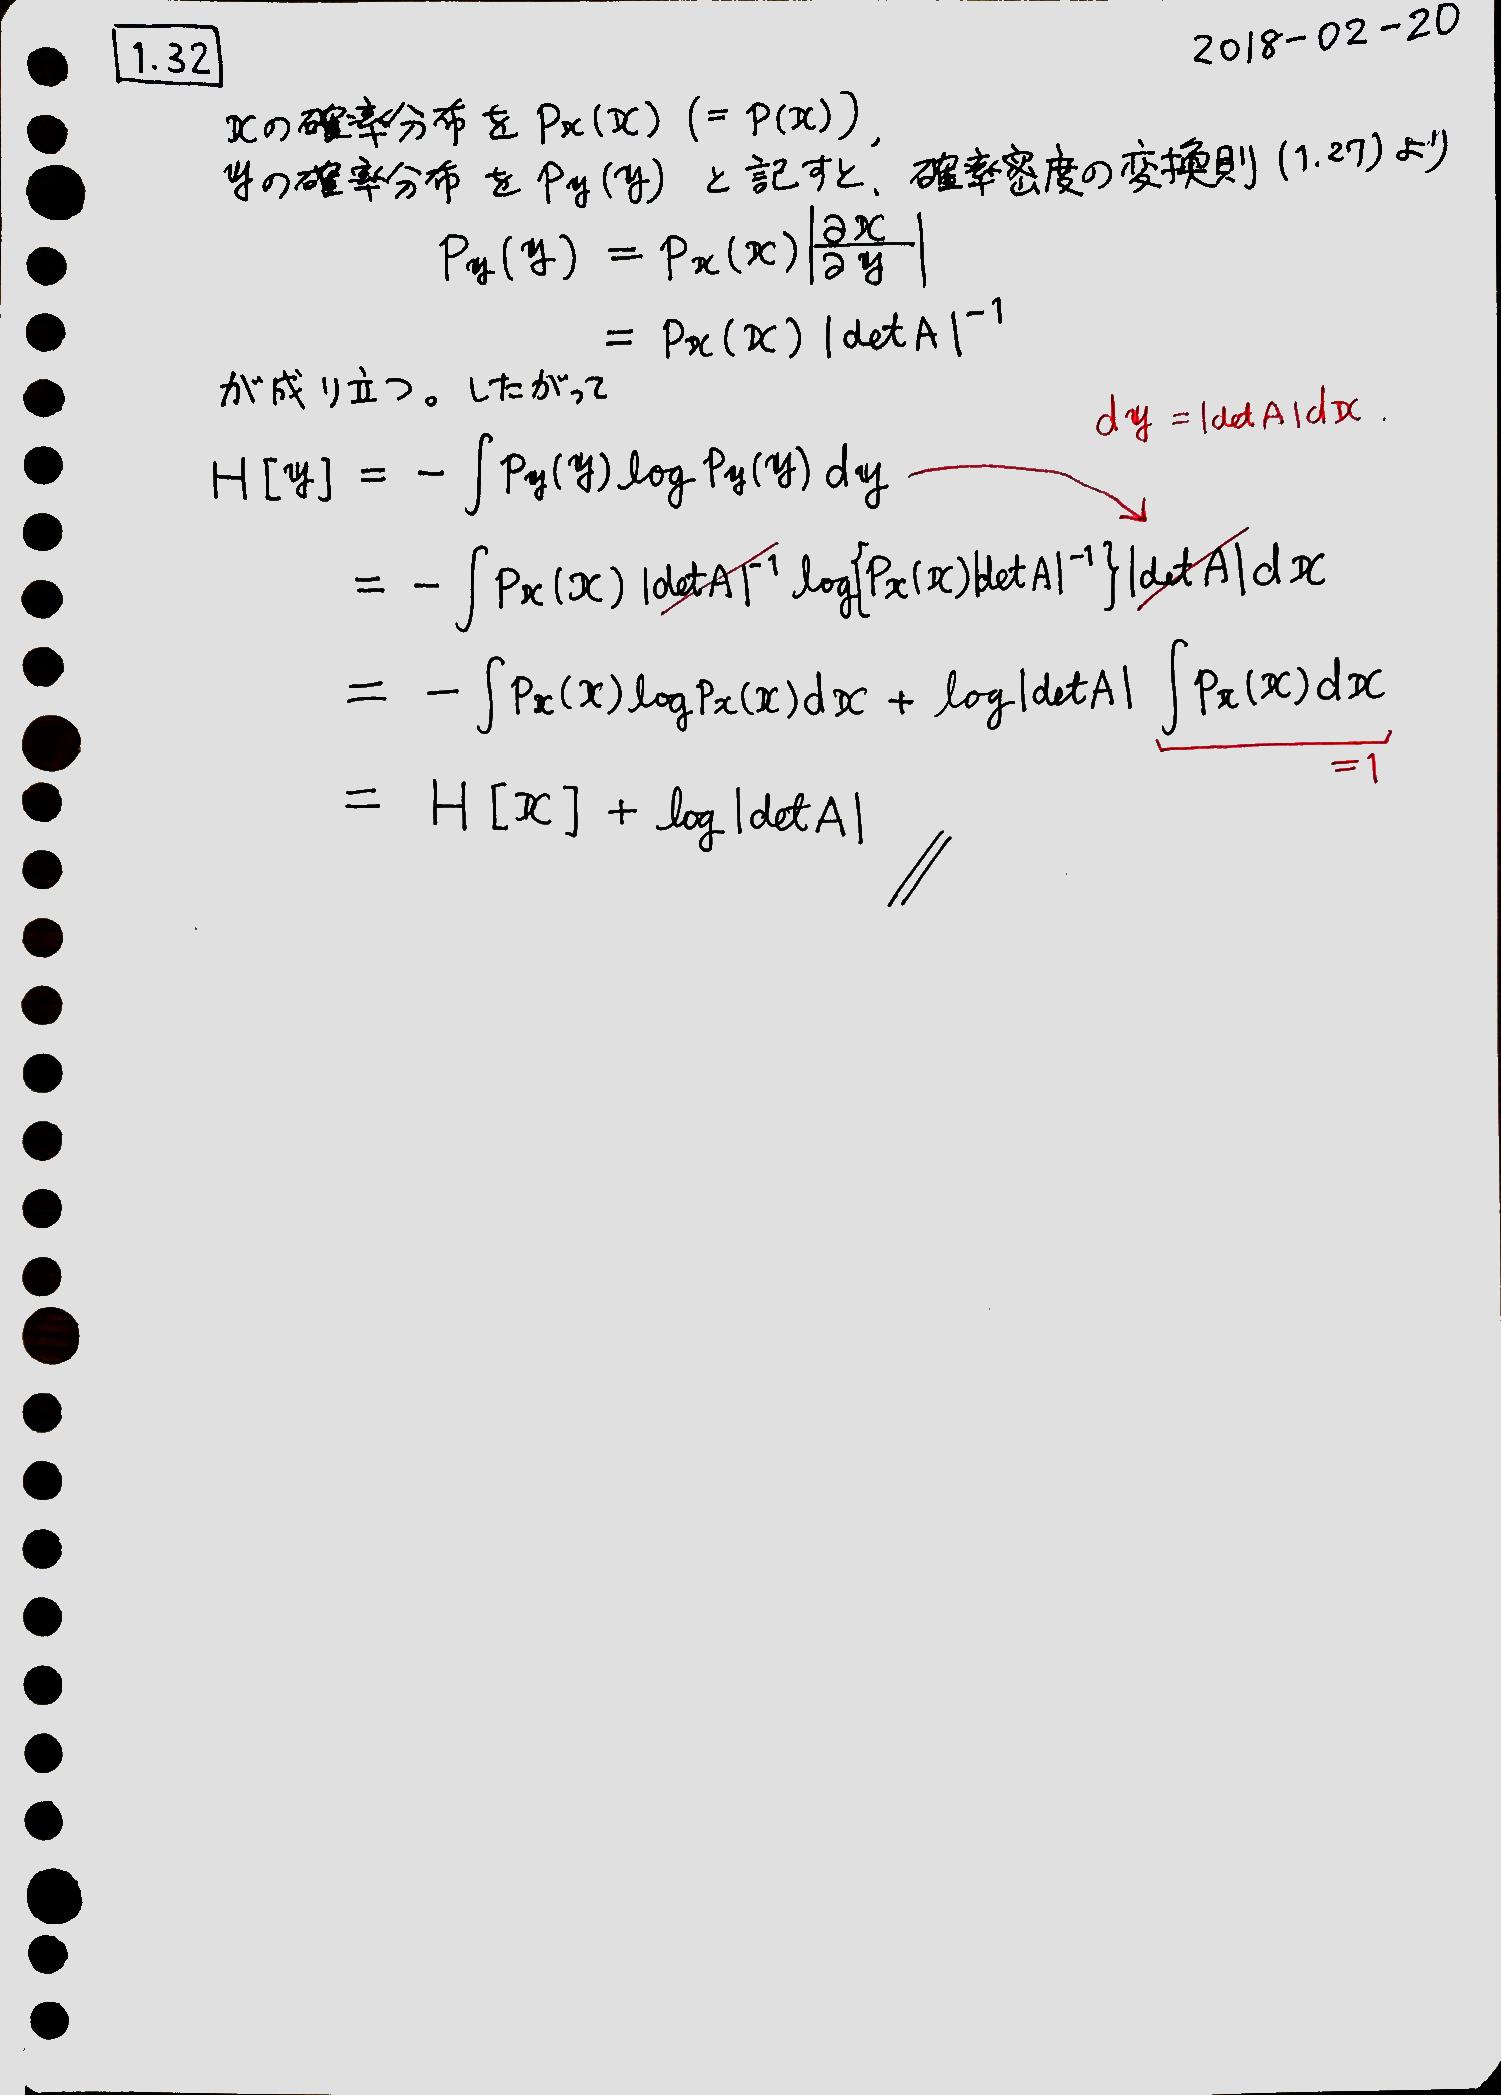 1.32
2018-02-20
xの確率分布を Px(x) (= P(x)),
yの確率分布を Py(y) と記すと、確率密度の変換則 (1.27) より
Py(y) = Px(x)|∂x/∂y|
= Px(x) |det A|⁻¹
が成り立つ。したがって
dy = |det A| dx.
H[y] = - ∫ Py(y) log Py(y) dy
= - ∫ Px(x) |det A|⁻¹ log{Px(x)|det A|⁻¹} |det A| dx
= - ∫ Px(x) log Px(x) dx + log|det A| ∫ Px(x) dx
=1
= H[x] + log|det A|
//